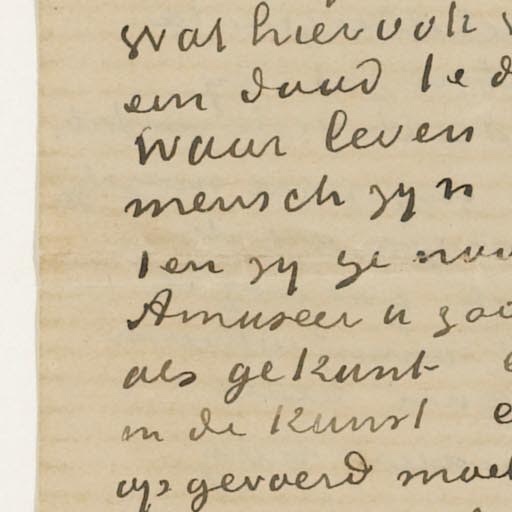 Wat hier ook
een daad te d
waar leven
mensch zyn
ten zy ge
Amuseer u zoo
als ge kunt e
in de kunst e
opgevoerd moet